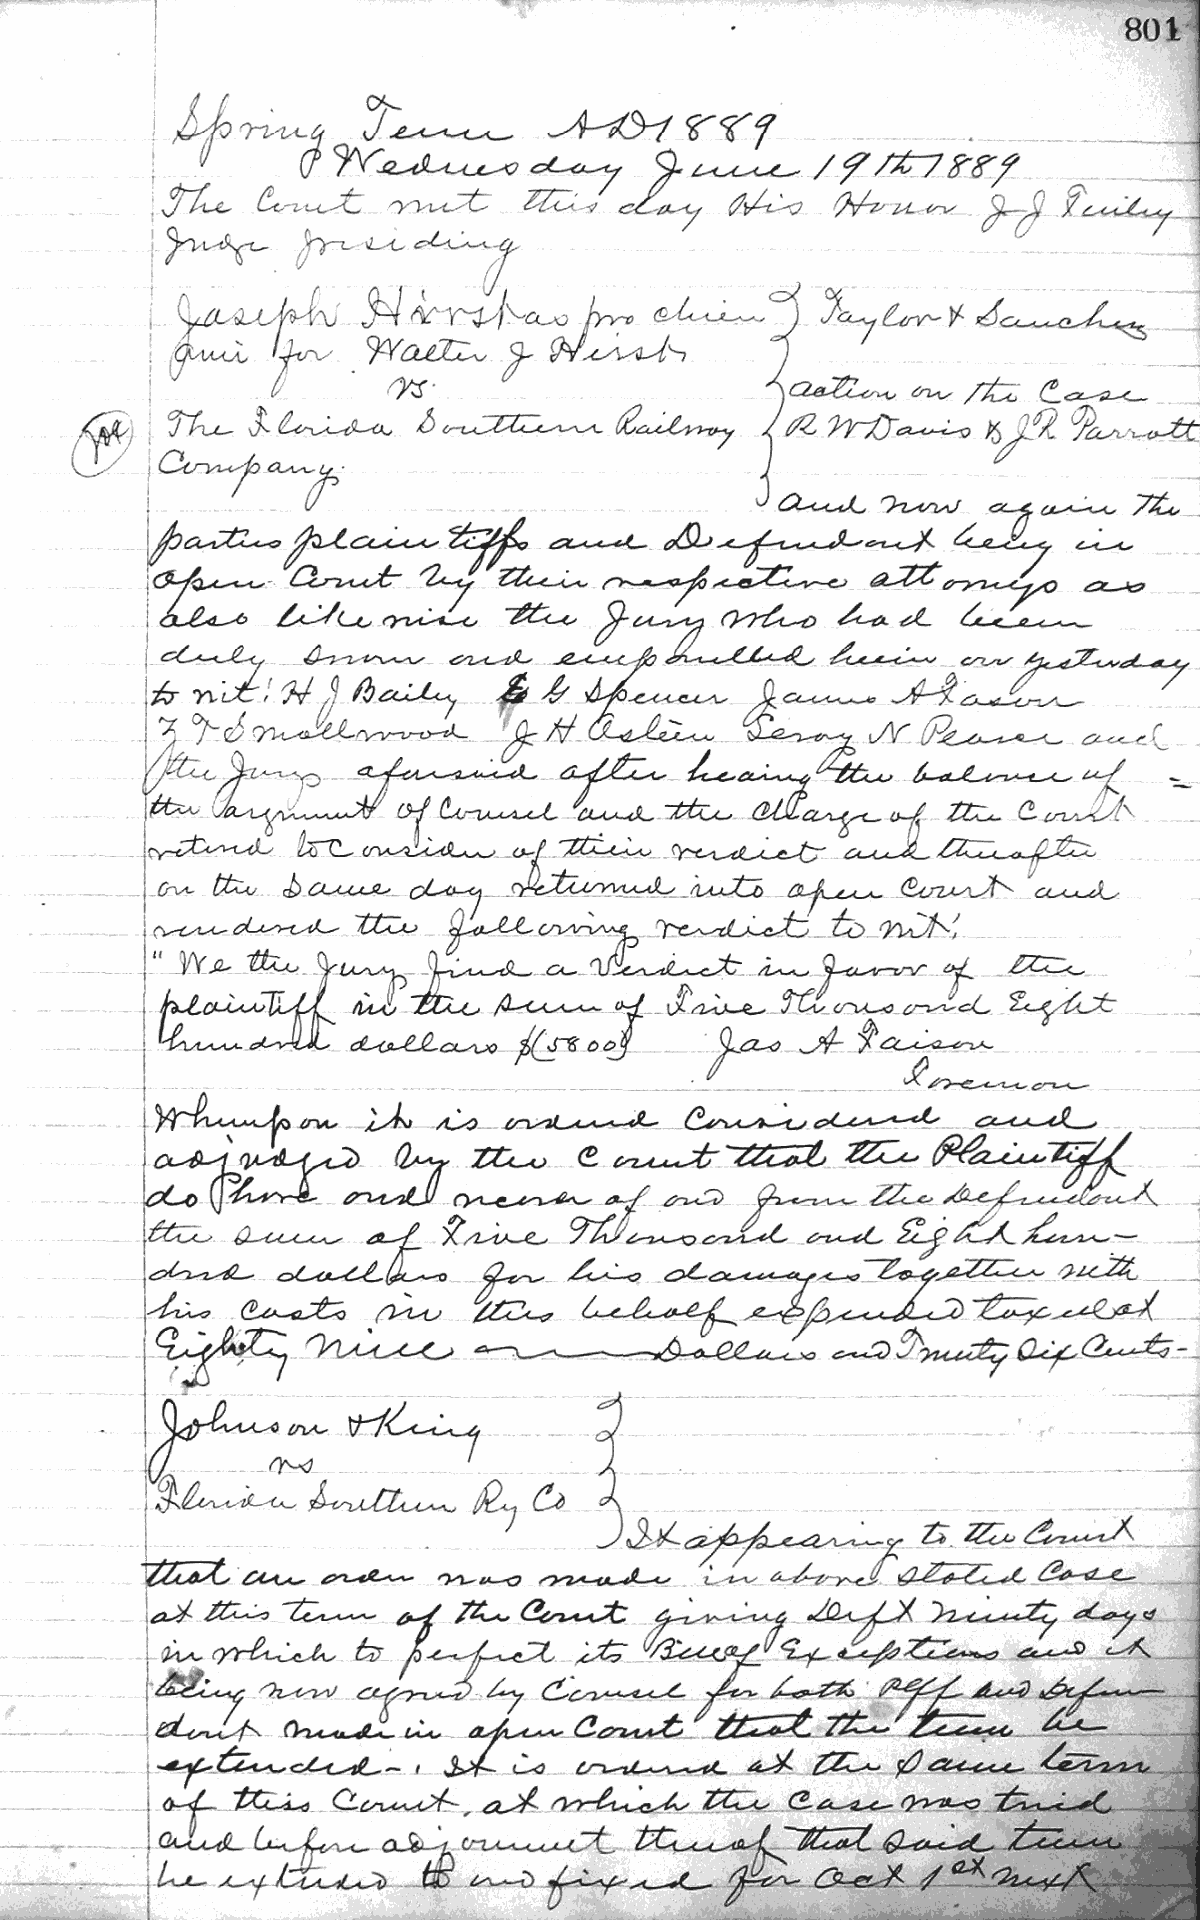 801
Spring Term AD 1889
Wednesday June 19th 1889
The Court met this day His Honor J J Finley
Judge presiding
Joseph Hirst as pro chien } Taylor & Sanchez
ami for Walter J Hirst
vs. action on the Case
The Florida Southern Railway R W Davis & J R Parrott
Company.
and now again the
parties plaintiffs and Defendant being in
open Court by their respective attorneys as
also likewise the Jury who had been
duly sworn and empanelled herein on yesterday
to wit: H J Bailey E G Spencer James A Fason
Z T Smallwood J H Astein Leroy N Pearce and
the Jury aforesaid after hearing the balance of =
the argument of Counsel and the charge of the Court
retired to Consider of their verdict and thereafter
on the same day returned into open Court and
rendered the following verdict to wit:
" We the Jury find a Verdict in favor of the
plaintiff in the sum of Five Thousand Eight
hundred dollars $(5800) Jas A Faison
Foreman
Whereupon it is ordered Considered and
adjudged by the Court that the Plaintiff
do have and recover of and from the Defendant
the sum of Five Thousand and Eight hun-
dred dollars for his damages together with
his costs in this behalf expended taxed at
Eighty Nine Dollars and Twenty Six Cents-
Johnson & King }
vs
Florida Southern Ry Co
It appearing to the Court
that an order was made in above stated Case
at this term of the Court giving Deft Ninety days
in which to perfect its Bill of Exceptions and it
being now agreed by Counsel for both Plff and Defen-
dant made in open Court that the time be
extended-. It is ordered at the same term
of this Court, at which the case was tried
and before adjournment thereof that said time
be extended to and fixed for Oct 1st next